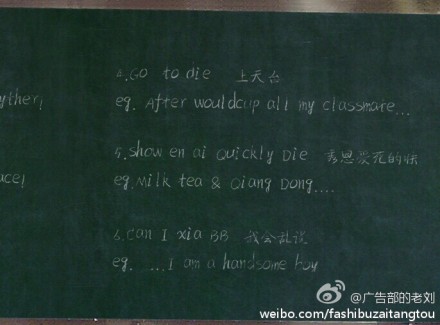 yther!
4.Go to die 上天台
eg. After wouldcup all my classmate...
5.show en ai quickly Die 秀恩爱死的快
ace!
eg.Milk tea & Qiang Dong....
6.can I xia BB 我会乱说
eg. ....I am a handsome boy
@广告部的老刘
weibo.com/fashibuzaitangtou